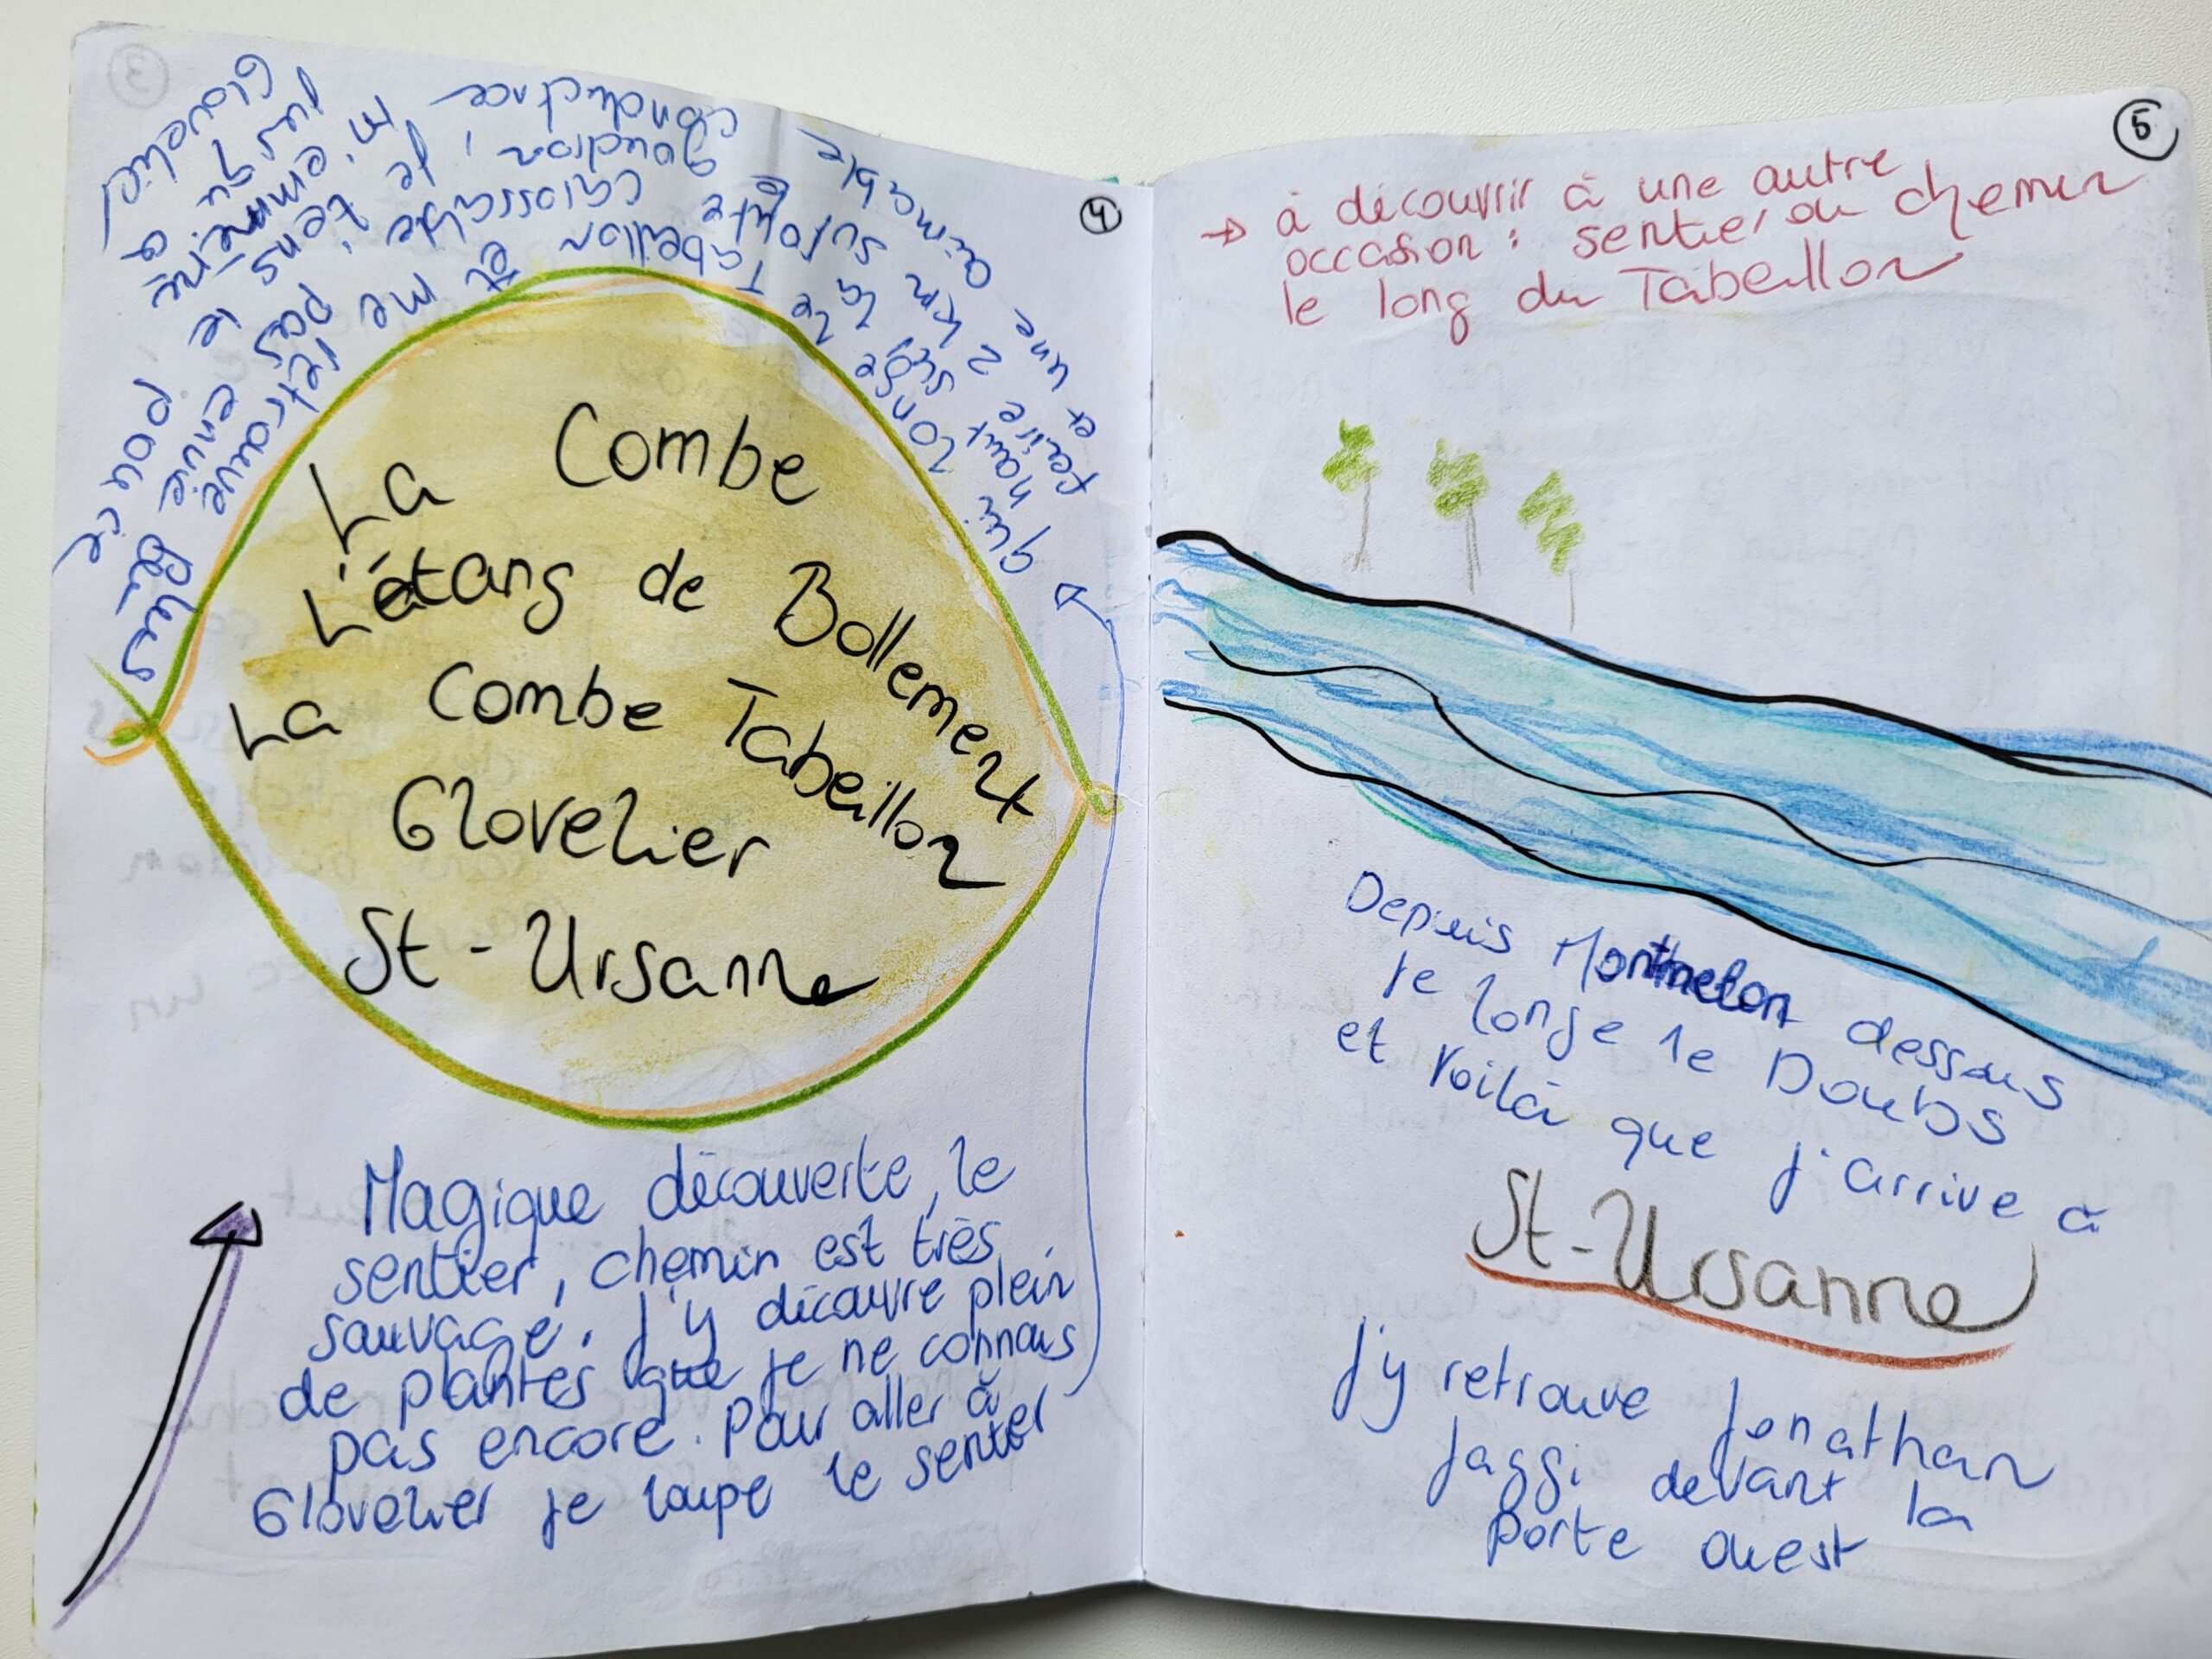 4
La Combe
L'étang de Bollement
La Combe Tabeillon
Glovelier
St-Ursanne
Magique découverte, le
sentier, chemin est très
sauvage. J'y découvre plein
de plantes que je ne connais
pas encore. Pour aller à
Glovelier je loupe le sentier
qui longe le Tabeillon et me retrouve plus
haut sur la route carrossable, pas envie de
faire 2 km sur goudron, je tens le pouce
et une aimable conductrice m'emmène jusqu'à Glovelier
3
5
→ à découvrir à une autre
occasion : sentier ou chemin
le long du Tabeillon
Depuis Montmelon dessous
je longe le Doubs
et voilà que j'arrive à
St-Ursanne
J'y retrouve Jonathan
Jaggi devant la
porte ouest